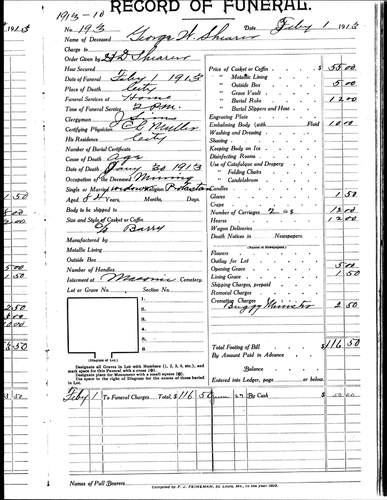 1913-10
RECORD OF FUNERAL.
No. 193 Date Feby 1 1913
Name of Deceased George W. Shearer
Charge to
Order Given by Shearer
How Secured
Date of Funeral Feby 1 1913
Place of Death City
Funeral Services at Home
Time of Funeral Service 2 P.M.
Clergyman J Sims
Certifying Physician
His Residence City
Number of Burial Certificate
Cause of Death Age
Date of Death Jany 30 1913
Occupation of the Deceased Mining
Single or Married widower Religion Protestant
Aged 84 Years, Months, Days.
Body to be shipped to
Size and Style of Casket or Coffin
Barry
Manufactured by
Metallic Lining
Outside Box
Number of Handles
Interment at Masonic Cemetery
Lot or Grave No. Section No.
1.
2.
3.
4.
5.
6.
(Diagram of Lot.)
Designate all Graves in Lot with Numbers (1, 2, 3, 4, etc.), and
mark space for this Funeral with a cross
Designate place for Monument with a small square
Use space to the right of Diagram for the names of those buried
in Lot.
Price of Casket or Coffin $ 55 00
" Metallic Lining
" Outside Box 5 00
" Grave Vault
" Burial Robe 12 00
" Burial Slippers and Hose
Engraving Plate
Embalming Body (with Fluid 10 00
Washing and Dressing
Shaving
Keeping Body on Ice
Disinfecting Rooms
Use of Catafalque and Drapery
" Folding Chairs
" Candelabrum
Candles
Gloves 1 50
Crape
Number of Carriages 2 12 00
Hearse 12 00
Wagon Deliveries
Death Notices in Newspapers
(Names of Newspapers)
Flowers
Outlay for Lot
Opening Grave 5 00
Lining Grave 1 50
Shipping Charges, prepaid
Removal Charges
Cremating Charges
Buggy Minister 2 50
Total Footing of Bill $ 116 50
By Amount Paid in Advance
Balance
Entered into Ledger, page or below.
Feby 1 To Funeral Charges Total, $ 116 50 June 27 By Cash $ 50 00
Names of Pall Bearers
Compiled by F. J. FEINEMAN, St. Louis, Mo., in the year 1902.